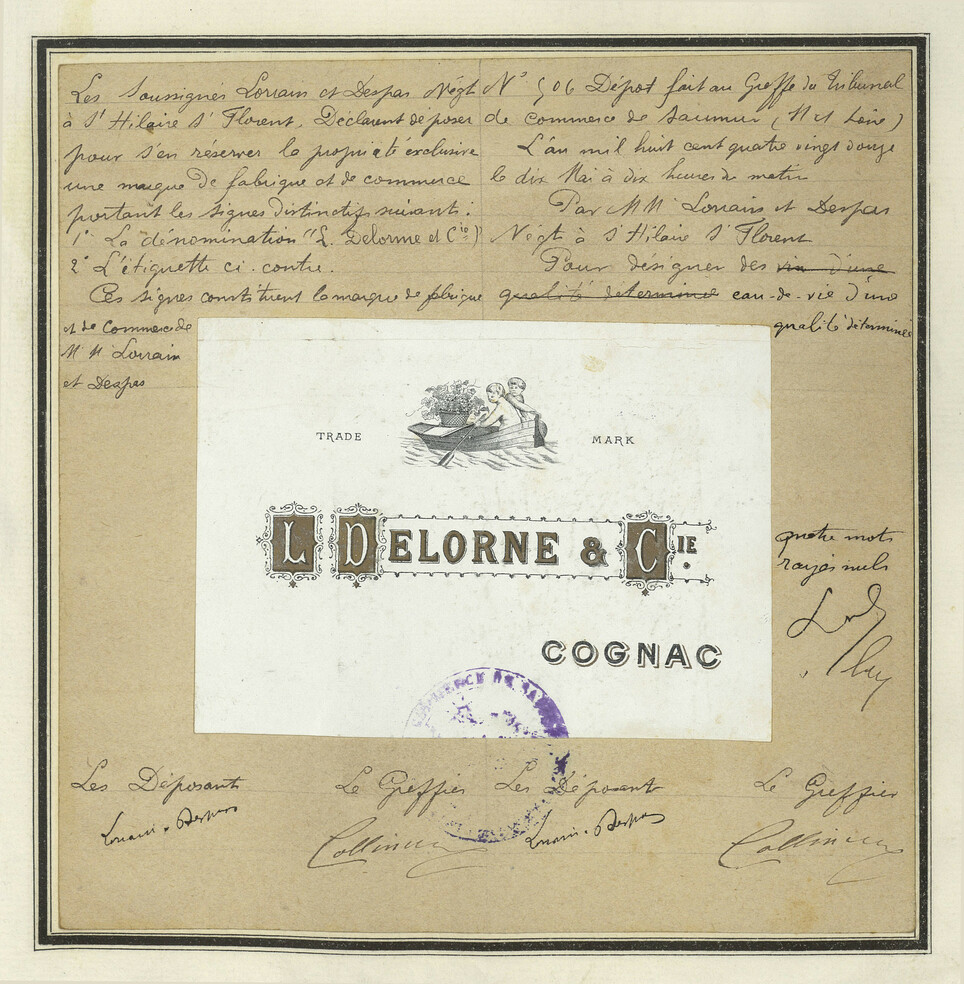 Les Soussignés Lorrain et Despas Négt
à St Hilaire St Florent, Déclarent déposer
pour s'en réserver la propriété exclusive
une marque de fabrique et de commerce
portant les signes distinctifs suivants :
1° La dénomination "L. Delorme et Cie"
2° L'étiquette ci-contre.
Ces signes constituent la marque de fabrique
et de commerce de
M M Lorrain
et Despas
N° 506 Dépot fait au Greffe du Tribunal
de commerce de Saumur (M et Loire)
L'an mil huit cent quatre vingt douze
le dix Mai à dix heures du matin
Par MM Lorrain et Despas
Négt à St Hilaire St Florent
Pour désigner des vin d'une
qualité determiné eau-de-vie d'une
qualité déterminée
TRADE MARK
L DELORNE & CIE.
COGNAC
quatre mots
rayés nuls
Les Déposant
Le Greffier
Les Déposant
Le Greffier
Lorrain. Despas
Lorrain. Despas